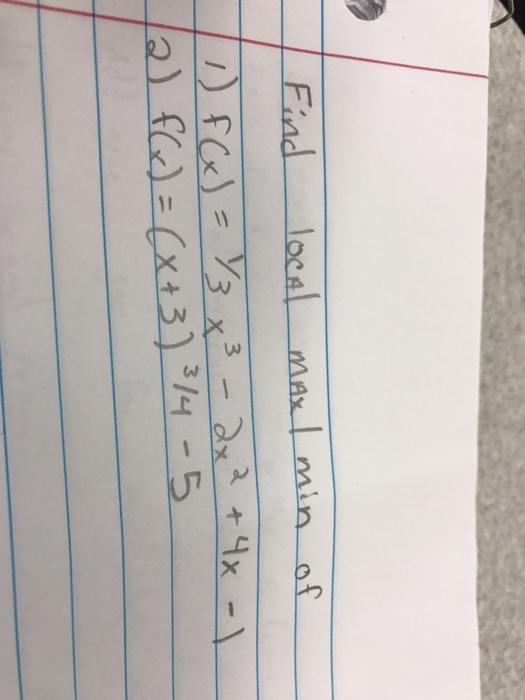 Find local max/min of
1) f(x) = 1/3 x³ - 2x² + 4x - 1
2) f(x) = (x+3)^3/4 - 5